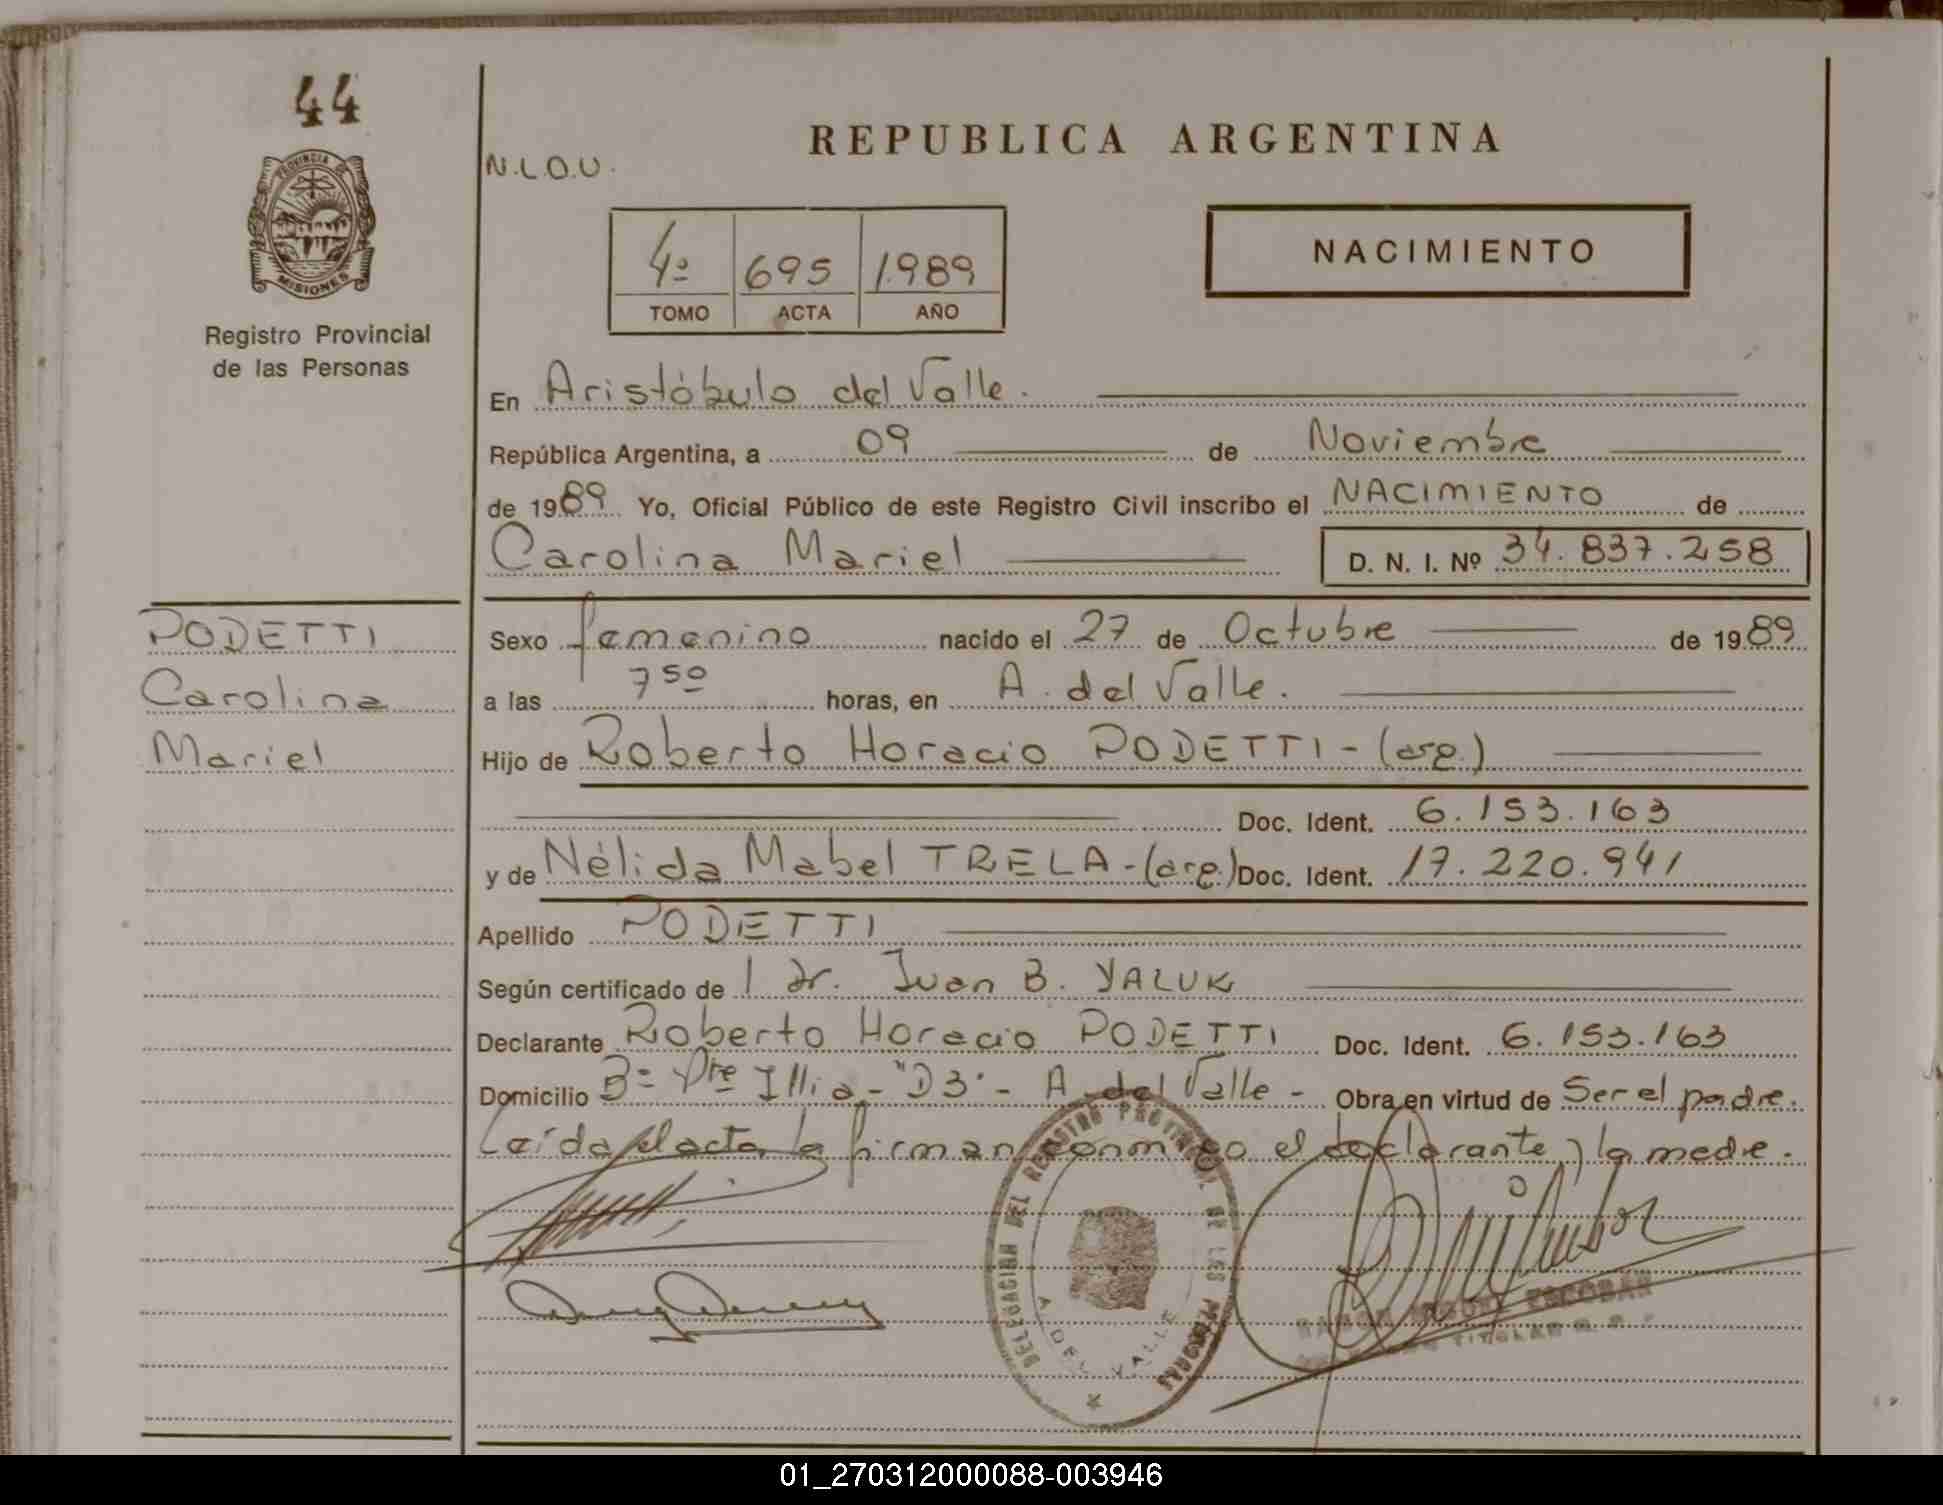 44
PROVINCIA DE
MISIONES
Registro Provincial
de las Personas
PODETTI
Carolina
Mariel
N.L.O.U.
REPUBLICA ARGENTINA
4º 695 1989
TOMO ACTA AÑO
NACIMIENTO
En Aristóbulo del Valle.
República Argentina, a 09 de Noviembre
de 1989 Yo, Oficial Público de este Registro Civil inscribo el NACIMIENTO de
Carolina Mariel D. N. I. Nº 34.837.258
Sexo femenino nacido el 27 de Octubre de 1989
a las 7 50 horas, en A. del Valle.
Hijo de Roberto Horacio PODETTI - (arg.)
Doc. Ident. 6.153.163
y de Nélida Mabel TRELA - (arg.) Doc. Ident. 17.220.941
Apellido PODETTI
Según certificado de 1 dr. Juan B. YALUK
Declarante Roberto Horacio PODETTI Doc. Ident. 6.153.163
Domicilio Bº Pte Illia - "D3" - A. del Valle - Obra en virtud de Ser el padre.
Leída el acta la firman conmigo el declarante y la madre.
DELEGACION DEL REGISTRO PROVINCIAL DE LAS PERSONAS
A. DEL VALLE
RAMON MIGUEL ESCOBAR
TITULAR R. P. P.
01_270312000088-003946